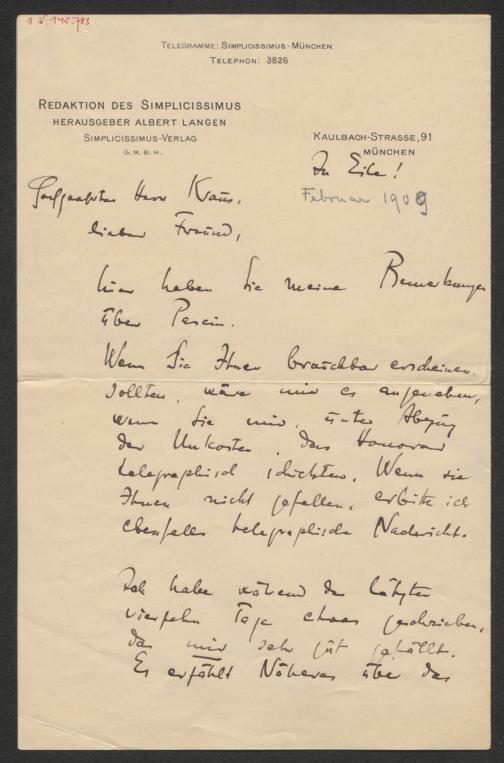 I.N. 145.783
TELEGRAMME: SIMPLICISSIMUS-MÜNCHEN
TELEPHON: 3826
REDAKTION DES SIMPLICISSIMUS
HERAUSGEBER ALBERT LANGEN
SIMPLICISSIMUS-VERLAG
G. M. B. H.
KAULBACH-STRASSE, 91
MÜNCHEN
In Eile!
Februar 1909
Hochgeehrter Herr Kraus,
lieber Freund,
hier haben Sie meine Bemerkungen
über Pascin.
Wenn Sie Ihnen brauchbar erscheinen
sollten, wäre mir es angenehm,
wenn Sie mir, unter Abzug
der Unkosten, das Honorar
telegraphisch schickten. Wenn sie
Ihnen nicht gefallen, erbitte ich
ebenfalls telegraphische Nachricht.
Ich habe während der letzten
vierzehn Tage etwas geschrieben,
das mir sehr gut gefällt.
Es erzählt Näheres über das